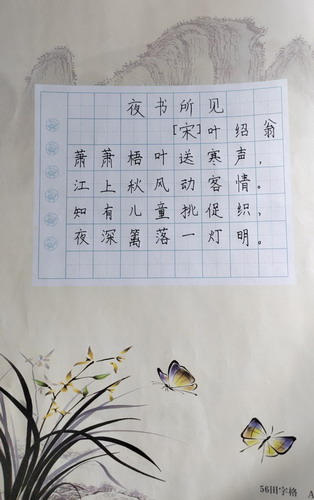 夜书所见
[宋]叶绍翁
萧萧梧叶送寒声，
江上秋风动客情。
知有儿童挑促织，
夜深篱落一灯明。
56田字格 A